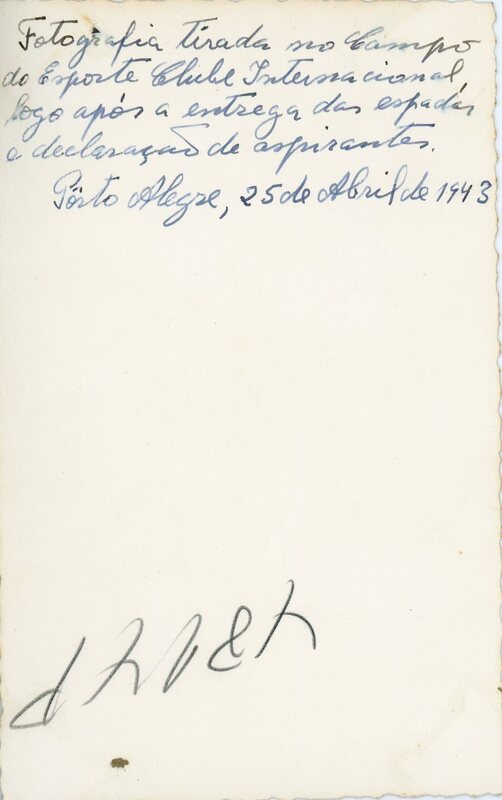 Fotografia tirada no Campo
do Esporte Clube Internacional,
logo após a entrega das espadas
e declaração de aspirantes.
Pôrto Alegre, 25 de Abril de 1943